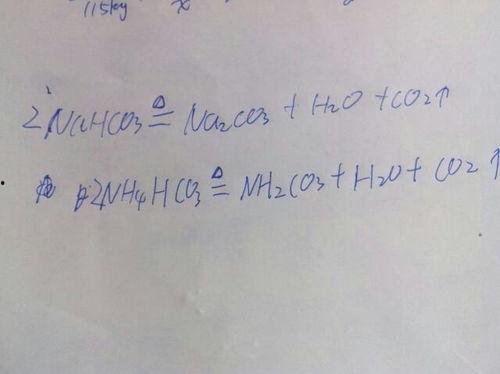 115kg x
2NaHCO3 ≜ Na2CO3 + H2O + CO2↑
2NH4HCO3 ≜ NH2CO3 + H2O + CO2↑